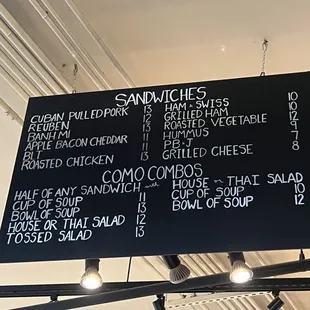 SANDWICHES
CUBAN PULLED PORK 13
REUBEN 13
BANH MI 12
APPLE BACON CHEDDAR 11
BLT 11
ROASTED CHICKEN 13
HAM & SWISS 10
GRILLED HAM 10
ROASTED VEGETABLE 12
HUMMUS 11
PB & J 7
GRILLED CHEESE 8
COMO COMBOS
HALF OF ANY SANDWICH with
CUP OF SOUP 11
BOWL OF SOUP 13
HOUSE OR THAI SALAD 12
TOSSED SALAD 13
HOUSE or THAI SALAD
CUP OF SOUP 10
BOWL OF SOUP 12